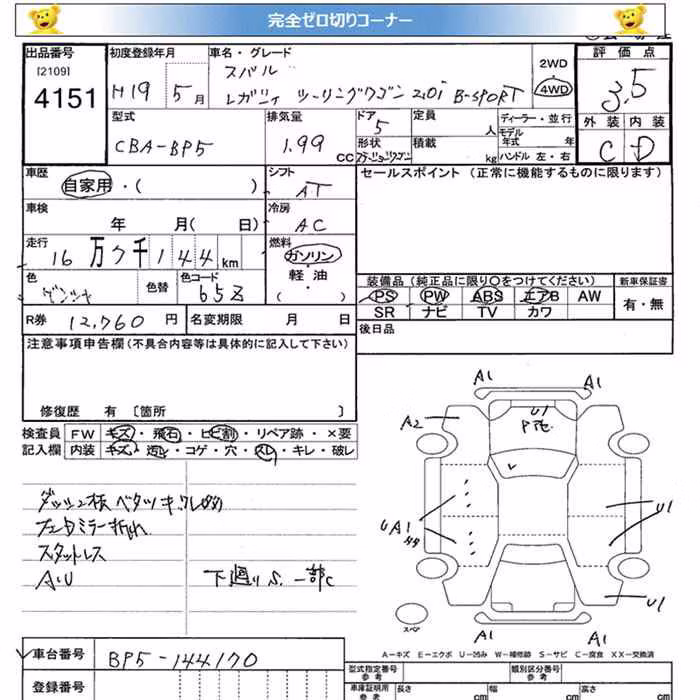 完全ゼロ切りコーナー
出品番号 初度登録年月 車名・グレード 2WD 評価点
[2109] スバル
4151 H19 5月 レガシィ ツーリングワゴン 2.0i B-SPORT 4WD 3.5
型式 排気量 ドア 定員 ディーラー・並行 外装 内装
CBA-BP5 1.99 CC 5 人 モデル年式 年 C D
形状 積載 kg ハンドル 左・右
車歴 シフト セールスポイント (正常に機能するものに限ります)
自家用・( ) AT
車検 冷房
年 月( 日) AC
走行 燃料
16万7千144km ガソリン
色 色替 色コード 軽・油
65Z ( )
装備品(純正品に限り○をつけてください) 新車保証書
PS PW ABS エアB AW 有・無
SR ナビ TV カワ
R券 12,760円 名変期限 月 日 後日品
注意事項申告欄(不具合内容等は具体的に記入して下さい)
修復歴 有 [箇所 ]
検査員 FW キズ・飛石・ヒビ割・リペア跡・×要
記入欄 内装 キズ・汚レ・コゲ・穴・スレ・キレ・破レ
スタットレス
A・U 下廻りS.一部C
A1 A1
A2 U1
UA1 U1
U1
スペア
A1 A1
A-キズ E-エクボ U-凹み W-補修跡 S-サビ C-腐食 XX-交換済
車台番号 BP5-144170
型式指定番号 参考 類別区分番号 参考
登録番号 車庫証明用 参考 長さ cm 幅 cm 高さ cm